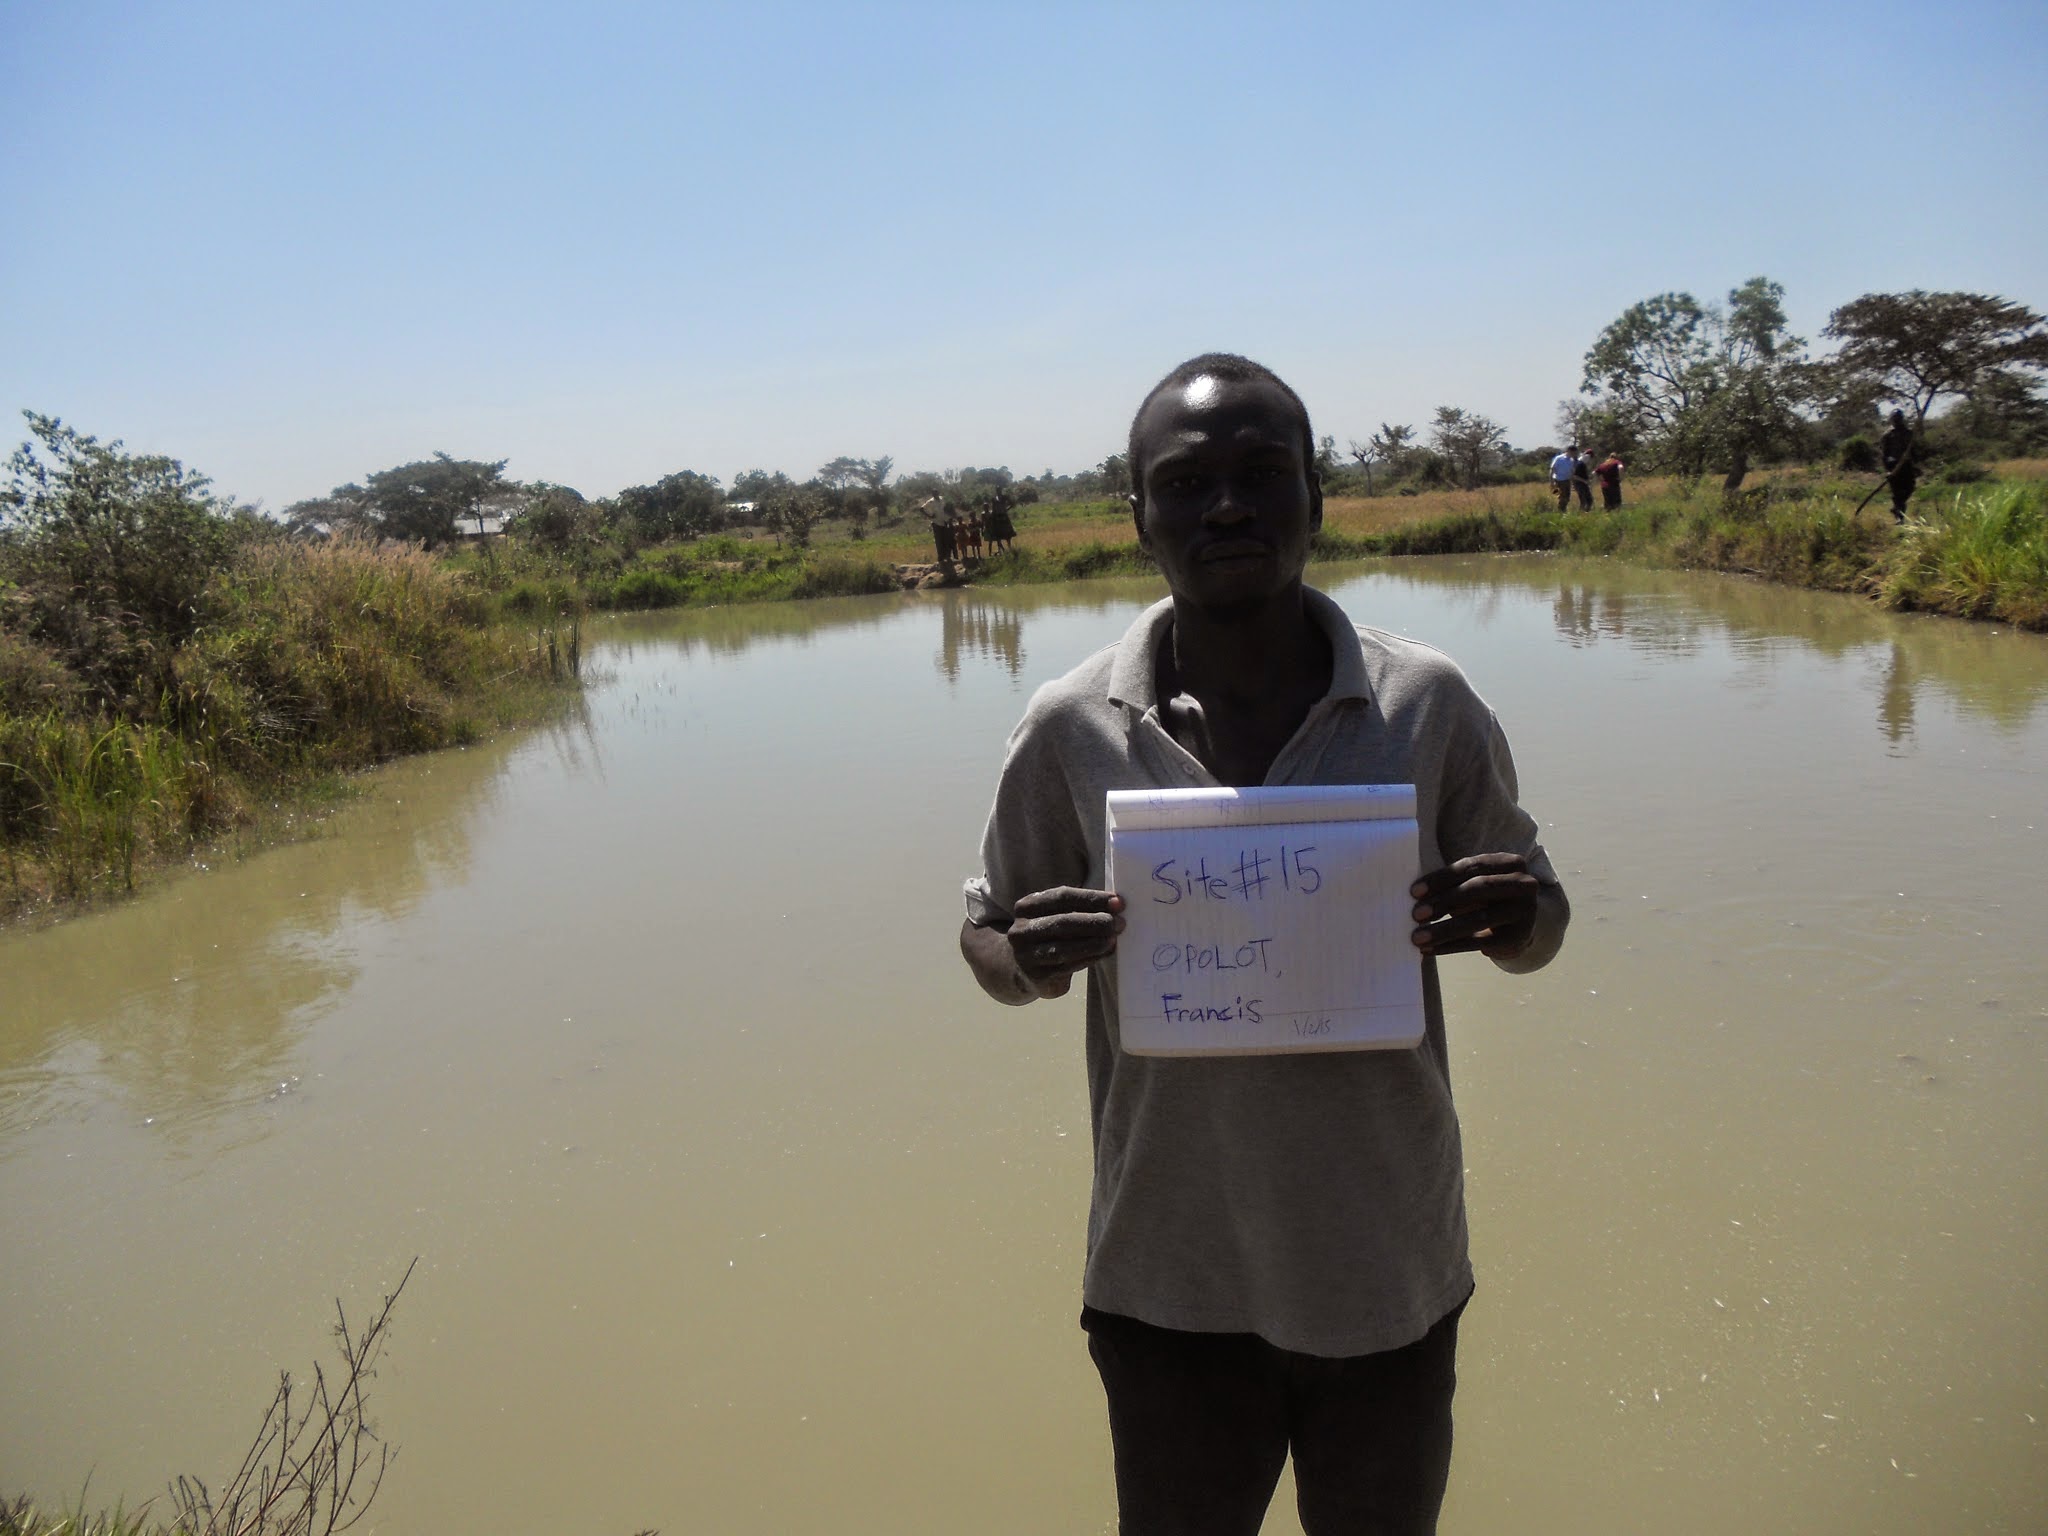 Site#15
OPOLOT,
Francis
1/2/15